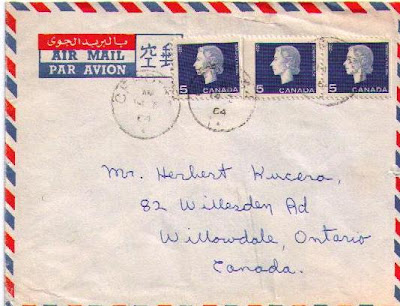 بالبريد الجوى
AIR MAIL
PAR AVION
空郵
5 CANADA
5 CANADA
5 CANADA
64
Mr. Herbert Kucera,
82 Willesden Rd
Willowdale, Ontario
Canada.